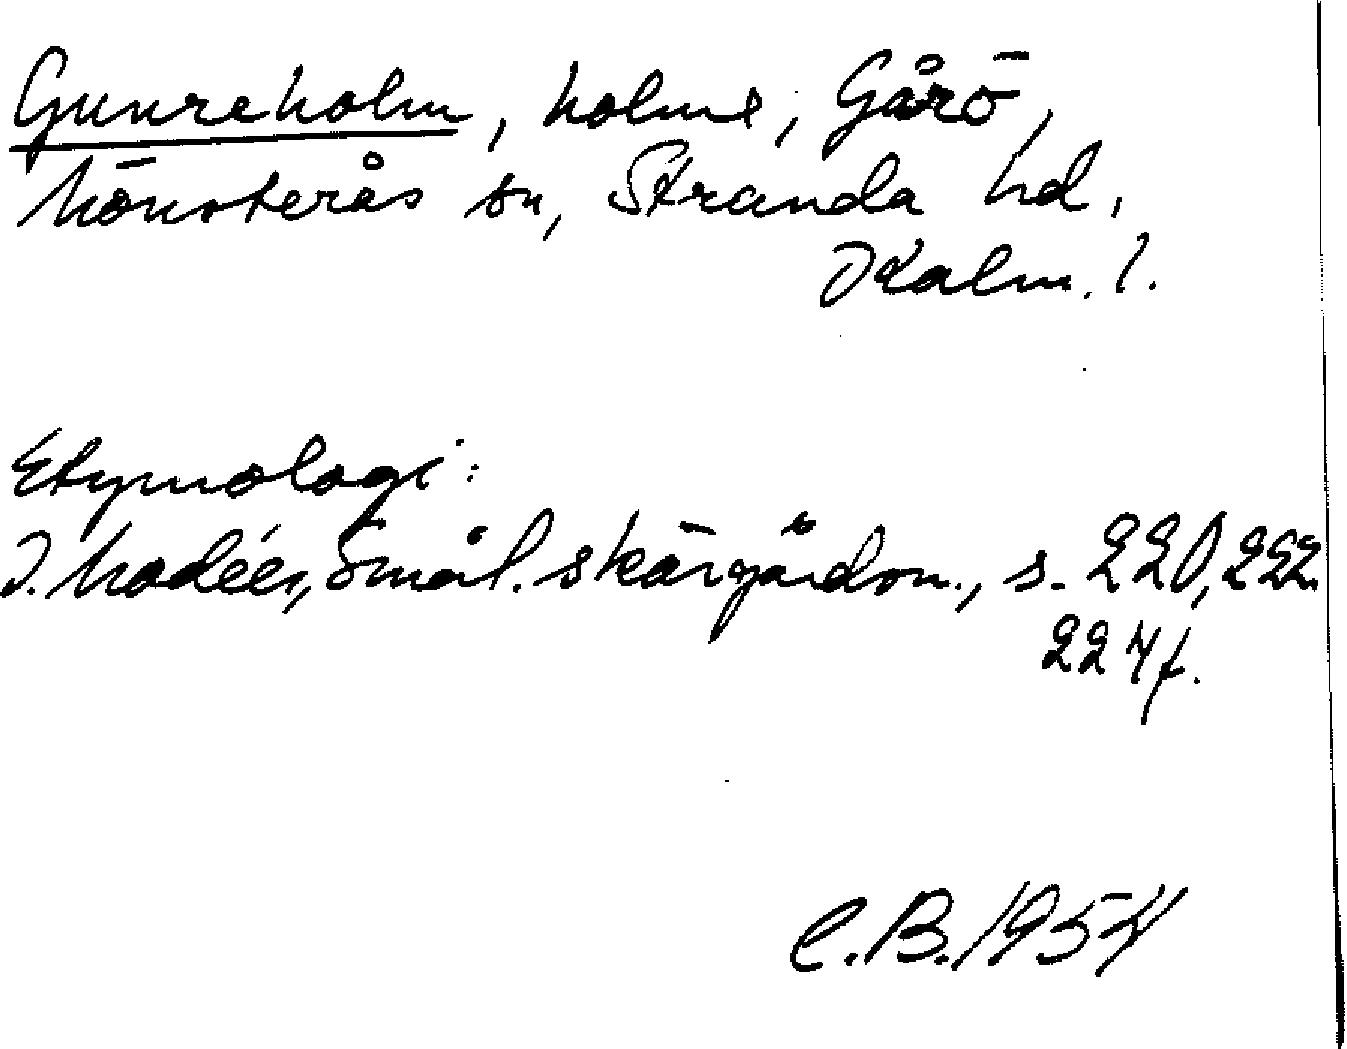 Gunreholm, holme, Gårö,
Mönsterås sn, Stranda hd,
Kalm. l.
Etymologi:
I. Modéer, Smål. skärgårdsn., s. 220, 222.
224f.
C.B. 1954